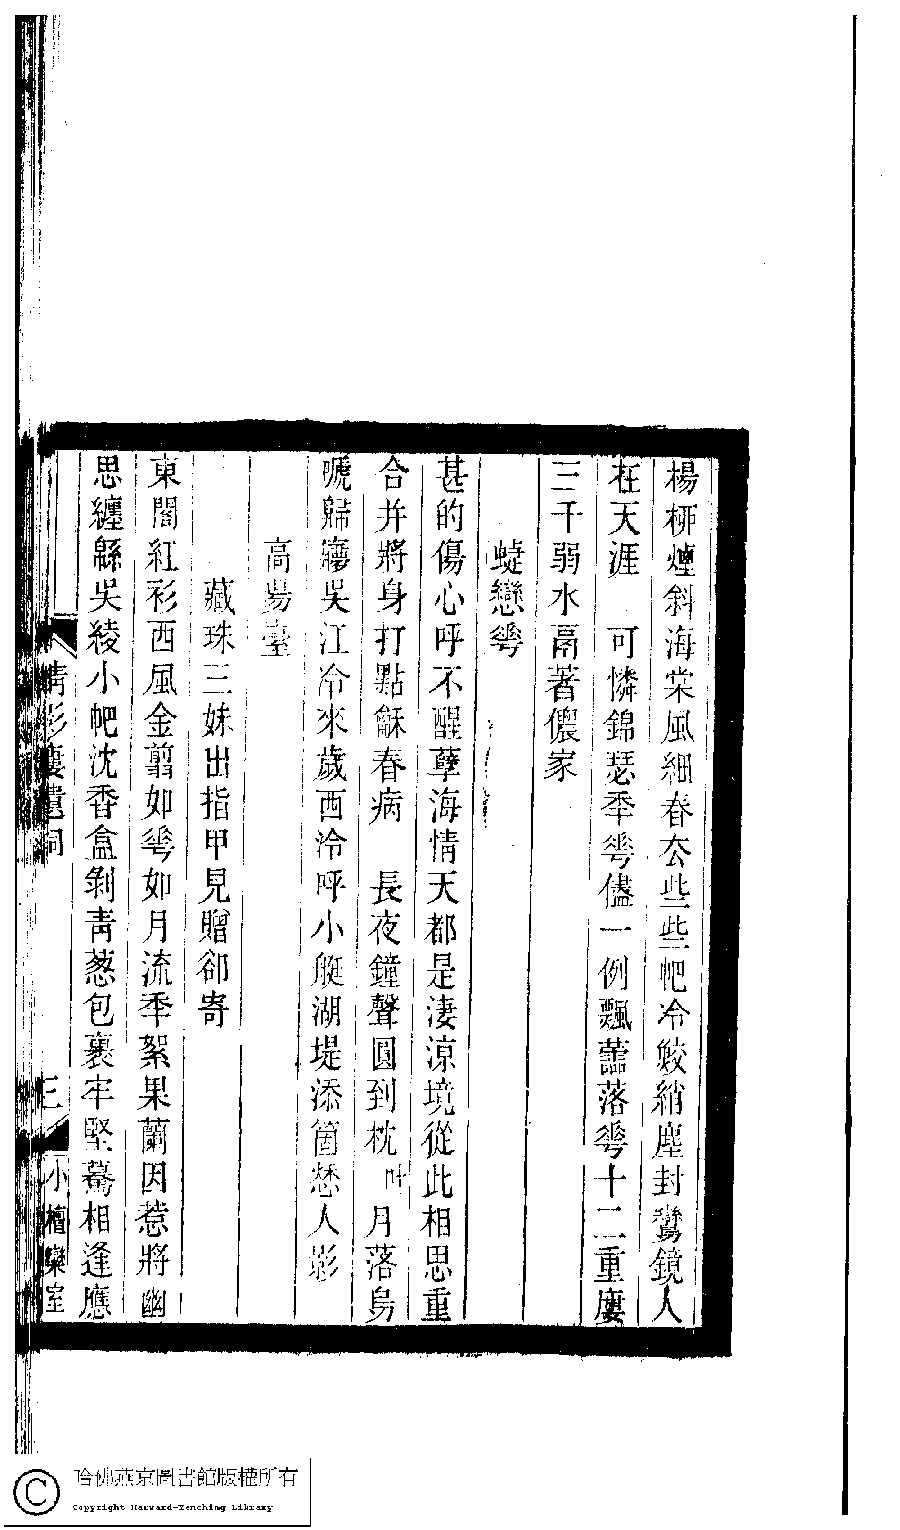 楊桺煙斜海棠風細春厺些些帊冷鮫綃塵封鸞鏡人
在天涯　可憐錦瑟秊華儘一例飄蘦落華十二重廔
三千弱水鬲著儂家
蜨戀華
甚的傷心呼不醒孽海情天都是淒涼境從此相思重
合并將身打點龢春病　長夜鐘聲圓到枕叶月落烏
嗁歸寱吳江冷來歲西泠呼小艇湖堤添箇愁人影
高陽臺
藏珠三妹出指甲見贈卻寄
東閣紅衫西風金翦如華如月流秊絮果蘭因惹將幽
思纏緜吳綾小帊沈香盒剝青蔥包裹牢堅驀相逢應
情影廔遺詞
三
小檀欒室
哈佛燕京圖書館版權所有
Copyright Harvard-Yenching Library